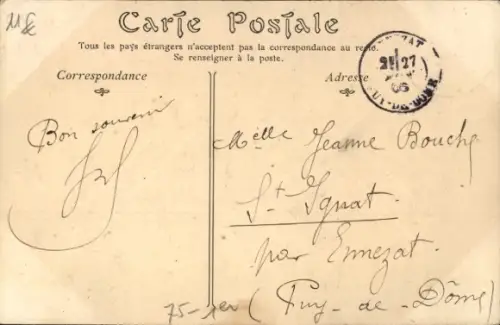 Carte Postale
Tous les pays étrangers n'acceptent pas la correspondance au recto.
Se renseigner à la poste.
Correspondance
Adresse
27
PUY-DE-DOME
Bon souvenir
Melle Jeanne Bouche
St Ignat
par Ennezat
(Puy-de-Dôme)
75-1er